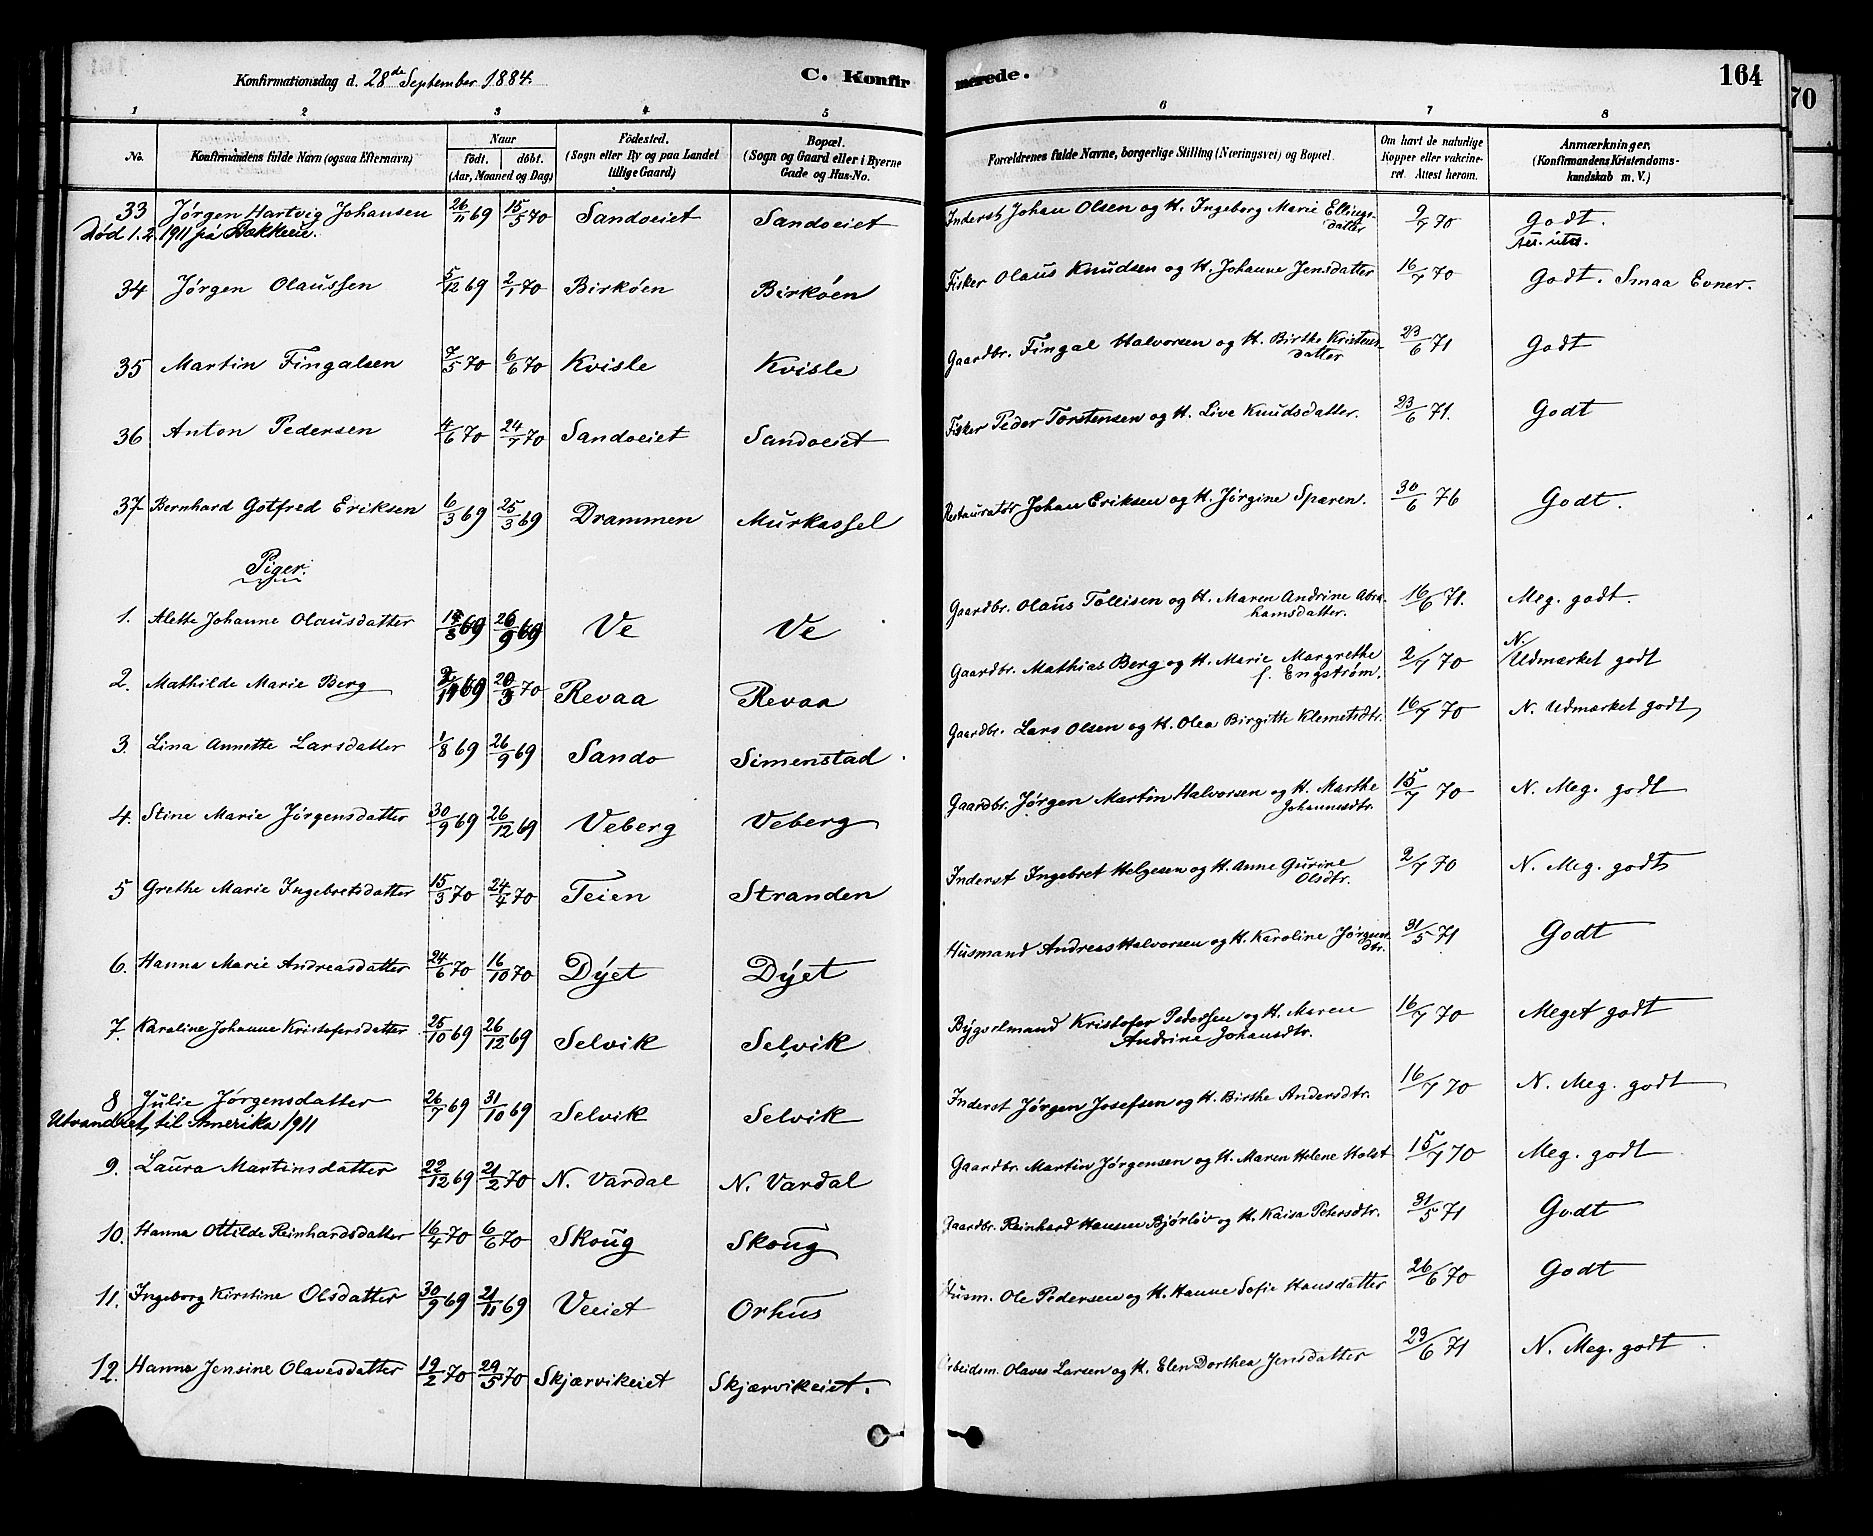 Konfirmationsdag d. 28de September 1884.
C. Konfir
merede.
164
70
1 2 3 4 5 6 7 8
No.
Konfirmandens fulde Navn (ogsaa Efternavn)
Naar
født. døbt.
(Aar, Maaned og Dag)
Födested.
(Sogn eller By og paa Landet
tillige Gaard)
Bopæl.
(Sogn og Gaard eller i Byerne
Gade og Hus-No.
Forældrenes fulde Navne, borgerlige Stilling (Næringsvei) og Bopæl.
Om havt de naturlige
Kopper eller vakcine-
ret. Attest herom.
Anmærkninger.
(Konfirmandens Kristendoms-
kundskab m. V.)
33 Jørgen Hartvig Johansen 26/11 69 15/5 70 Sandoeiet Sandoeiet Inderst Johan Olsen og H. Ingeborg Marie Ellings-
datter 9/7 70 Godt.
Død 1.2. 1911 på Bakken.
34 Jørgen Olaussen 5/12 69 2/1 70 Birköen Birköen Fisker Olaus Knudsen og H. Johanne Jensdatter 16/7 70 Godt. Smaa Evner.
35 Martin Fingalsen 7/5 70 6/6 70 Kvisle Kvisle Gaardbr. Fingal Halvorsen og H. Birthe Kristens-
datter 23/6 71 Godt
36 Anton Pedersen 4/6 70 24/7 70 Sandoeiet Sandoeiet Fisker Peder Torstensen og H. Live Knudsdatter. 23/6 71. Godt
37 Bernhard Gotfred Eriksen 6/3 69 25/3 69 Drammen Murkassel Restauratør Johan Eriksen og H. Jørgine Sparen. 30/6 76 Godt.
Piger.
1. Alette Johanne Olausdatter 69 26/9 69 Ve Ve Gaardbr. Olaus Tollisen og H. Maren Andrine Abra-
hamsdatter. 16/6 71. Meg. godt.
2. Mathilde Marie Berg 69 20/3 70 Revaa Revaa Gaardbr. Mathias Berg og H. Marie Margrethe
f. Engstrøm. 2/7 70 N. Udmærket godt
3. Lina Annette Larsdatter 1/8 69 26/9 69 Sando Simenstad Gaardbr. Lars Olsen og H. Olea Birgithe Klemetsdtr. 16/7 70 N. Udmærket godt
4. Stine Marie Jørgensdatter 30/9 69 26/12 69 Veberg Veberg Gaardbr. Jørgen Martin Halvorsen og H. Marthe
Johannesdtr. 15/7 70 N. Meg. godt
5 Grethe Marie Ingebretsdatter 15/3 70 24/4 70 Teien Stranden Inderst Ingebret Helgesen og H. Anne Gurine
Olsdtr. 2/7 70 N. Meg. godt
6. Hanna Marie Andreasdatter 24/6 70 16/10 70 Dyet Dyet Husmand Andreas Halvorsen og H. Karoline Jørgens-
dtr. 31/5 71 Godt
7. Karoline Johanne Kristofersdatter 25/10 69 26/12 69 Selvik Selvik Bygselmand Kristofer Pedersen og H. Maren
Andrine Johansdtr. 16/7 70 Meget godt
8 Julie Jørgensdatter 26/7 69 31/10 69 Selvik Selvik Inderst Jørgen Josefsen og H. Birthe Andersdtr. 16/7 70 N. Meg. godt
Utvandret til Amerika 1911
9. Laura Martinsdatter 22/12 69 21/2 70 N. Vardal N. Vardal Gaardbr. Martin Jørgensen og H. Maren Helene Holst 15/7 70 Meg. godt
10. Hanna Ottilde Reinhardsdatter 16/4 70 6/6 70 Skoug Skoug Gaardbr. Reinhard Hansen Bjørløv og H. Kaisa Petersdtr. 31/5 71 Godt
11. Ingeborg Kirstine Olsdatter 30/9 69 21/11 69 Veeiet Orhus Husm. Ole Pedersen og H. Hanne Sofie Hansdatter 26/6 70 Godt
12. Hanna Jensine Olavesdatter 19/2 70 29/5 70 Skjærvikeiet Skjærvikeiet. Arbeidsm. Olaves Larsen og H. Elen Dorthea Jensdatter 29/6 71 N. Meg. godt.